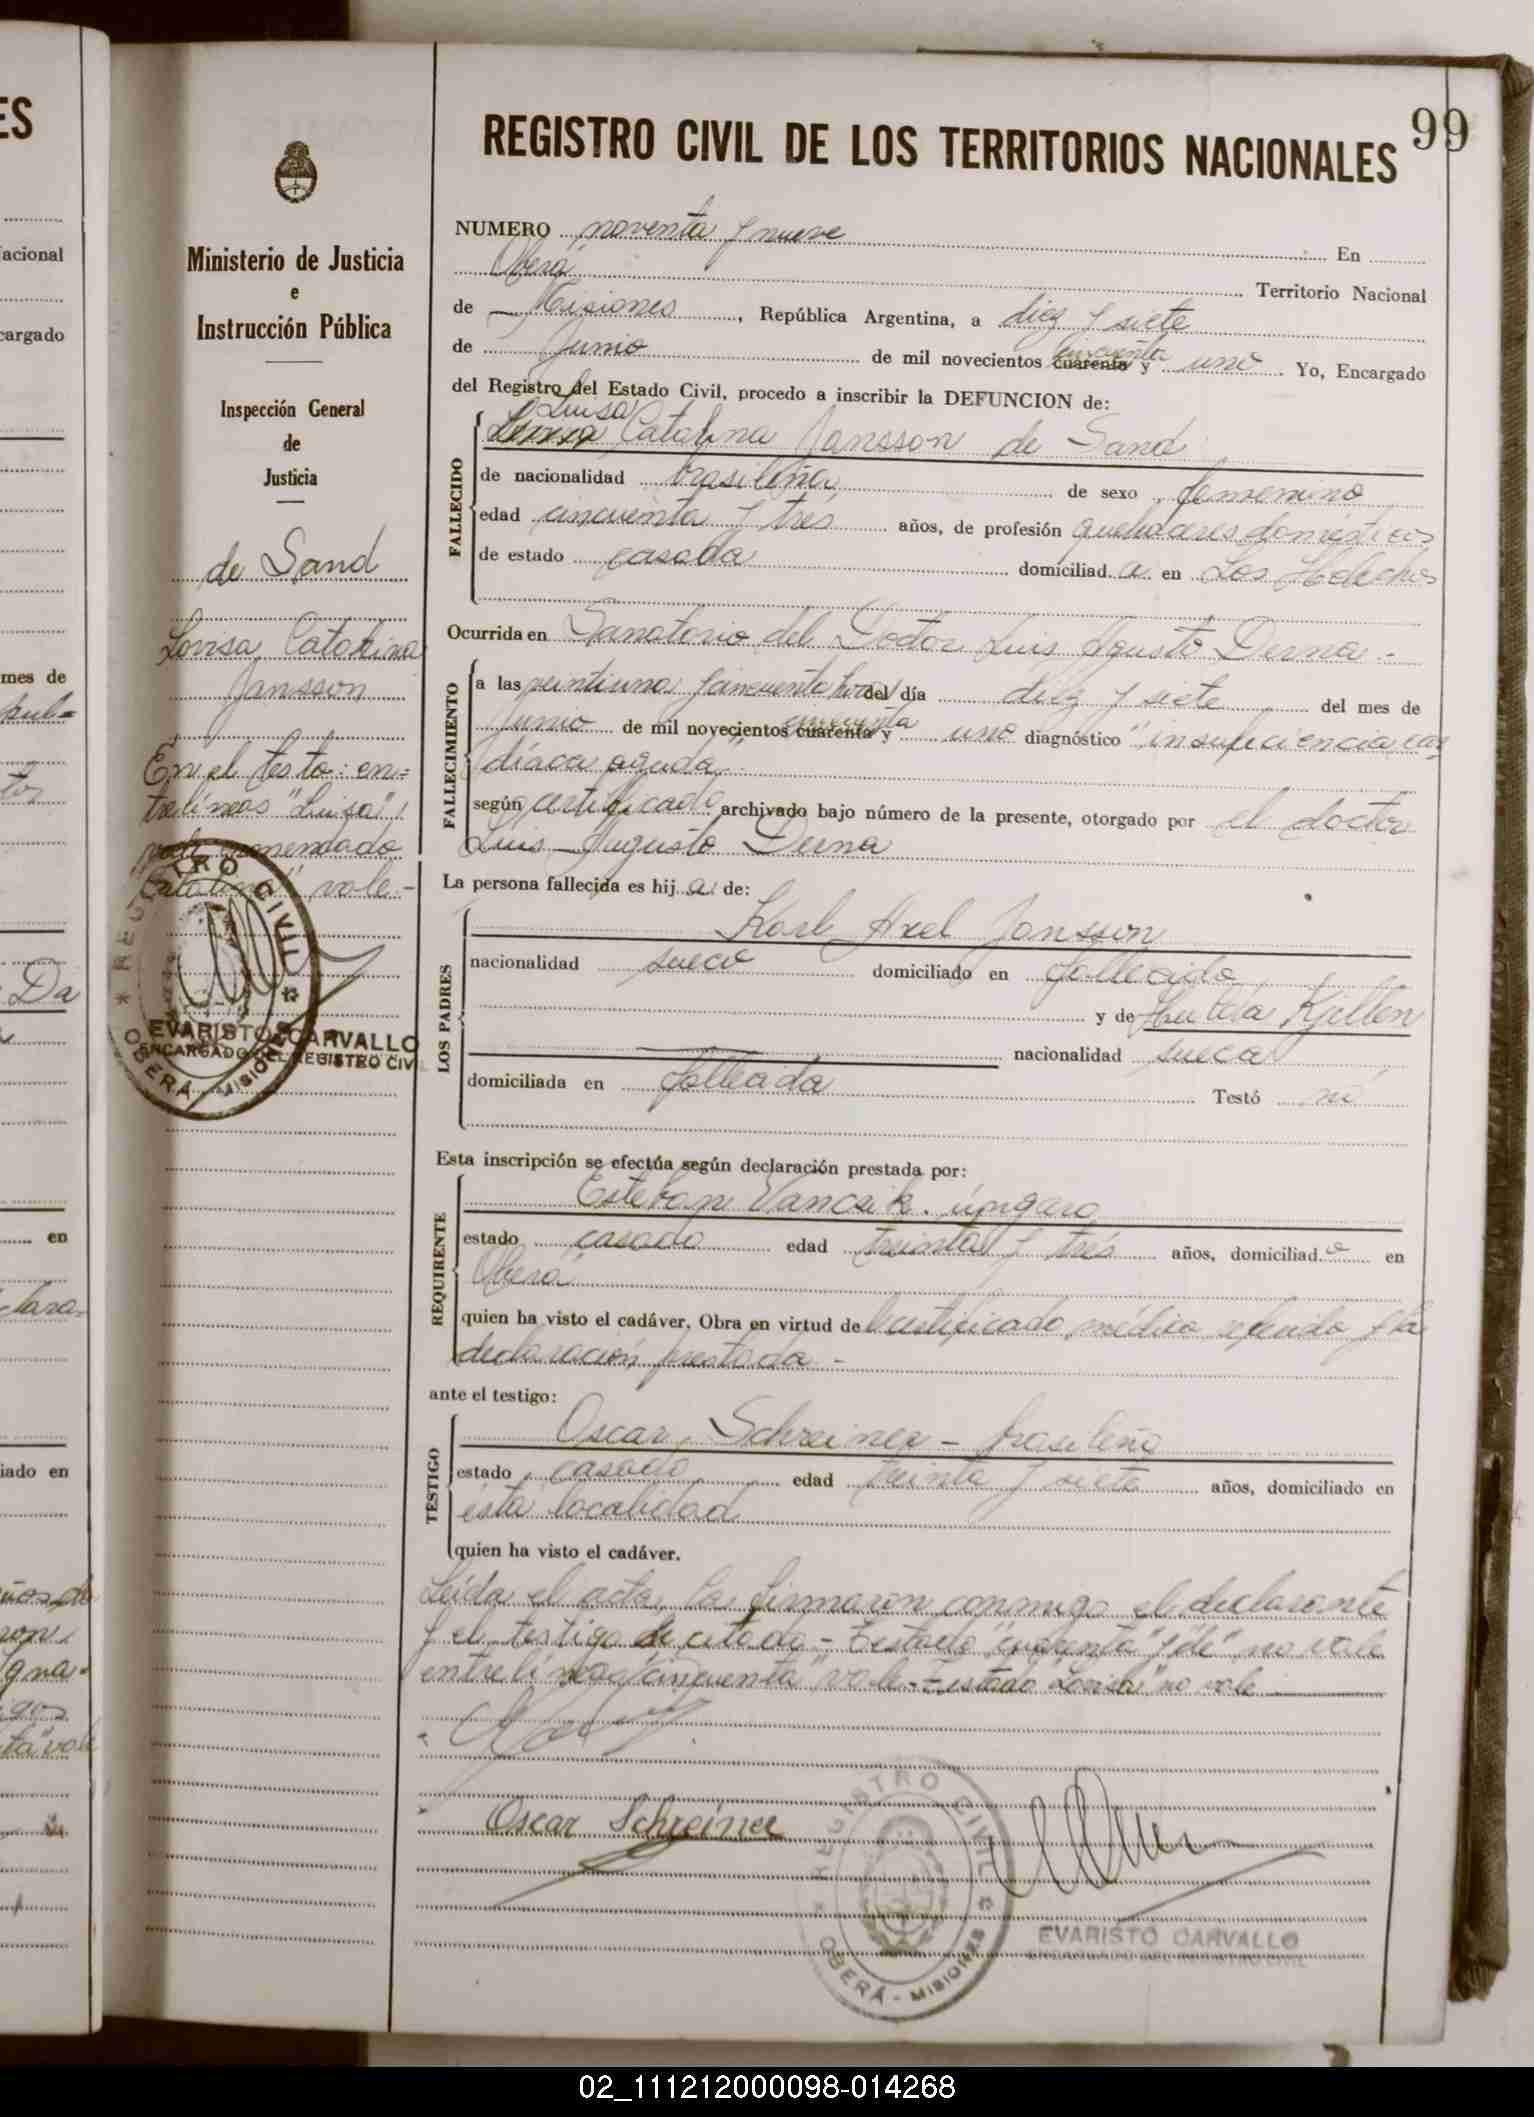 ES
acional
cargado
mes de
Da
en
iado en
99
REGISTRO CIVIL DE LOS TERRITORIOS NACIONALES
Ministerio de Justicia
e
Instrucción Pública
Inspección General
de
Justicia
de Sand
Lovisa Catarina
Jansson
En el testo: en=
trelíneas "Luisa"
vale enmendado
"Catalina" vale.-
REGISTRO CIVIL
OBERÁ - MISIONES
EVARISTO CARVALLO
ENCARGADO DEL REGISTRO CIVIL
NUMERO noventa y nueve En
Oberá Territorio Nacional
de Misiones, República Argentina, a diez y siete
de Junio de mil novecientos cuarenta cincuenta y uno Yo, Encargado
del Registro del Estado Civil, procedo a inscribir la DEFUNCION de:
Luisa
Lovisa Catalina Jansson de Sand
FALLECIDO
de nacionalidad brasileña de sexo femenino
edad cincuenta y tres años, de profesión quehaceres domésticos
de estado casada domiciliada en Los Helechos
Ocurrida en Sanatorio del Doctor Luis Agusto Derna.-
FALLECIMIENTO
a las veintiuna y cincuenta horas del día diez y siete del mes de
Junio de mil novecientos cuarenta cincuenta y uno diagnóstico "insuficiencia car
díaca aguda"
según certificado archivado bajo número de la presente, otorgado por el doctor
Luis Augusto Derna
La persona fallecida es hija de:
LOS PADRES
Karl Axel Jansson
nacionalidad sueco domiciliado en fallecido
y de Hulda Kjillen
nacionalidad sueca
domiciliada en fallecida Testó no
Esta inscripción se efectúa según declaración prestada por:
REQUIRENTE
Esteban Vancsik. úngaro
estado casado edad treinta y tres años, domiciliado en
Oberá
quien ha visto el cadáver. Obra en virtud de certificado médico referido y la
declaración prestada.-
ante el testigo:
TESTIGO
Oscar Schreiner - brasileño
estado casado edad treinta y siete años, domiciliado en
ésta localidad
quien ha visto el cadáver.
Leída el acta, la firmaron conmigo el declarante
y el testigo de citado - Testado "cuarenta" y "de" no vale
entrelíneas "cinquenta" vale - Testado "Lovisa" no vale
Oscar Schreiner
REGISTRO CIVIL
OBERÁ - MISIONES
EVARISTO CARVALLO
ENCARGADO DEL REGISTRO CIVIL
02_111212000098-014268